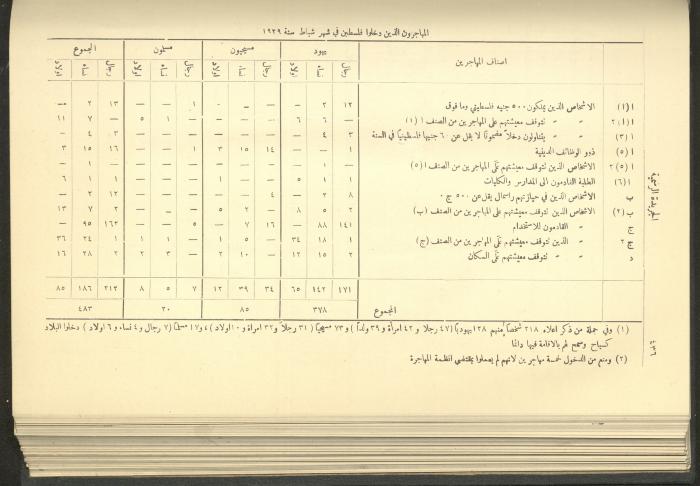 المهاجرون الذين دخلوا فلسطين في شهر شباط سنة ١٩٢٩
اصناف المهاجرين | يهود | مسيحيون | مسلمون | المجموع
رجال | نساء | اولاد | رجال | نساء | اولاد | رجال | نساء | اولاد | رجال | نساء | اولاد
ا (١) الاشخاص الذين يملكون ٥٠٠ جنيه فلسطيني وما فوق | ١٢ | ٢ | — | — | — | — | ١ | — | — | ١٣ | ٢ | —
ا (١) ٢ » » تتوقف معيشتهم على المهاجرين من الصنف ا (١) | — | ٦ | ٦ | — | — | — | — | ١ | ٥ | — | ٧ | ١١
ا (٣) » » يتناولون دخلاً مضمونًا لا يقل عن ٦٠ جنيهًا فلسطينيًا في السنة | ٣ | ٤ | — | — | — | — | — | — | — | ٣ | ٤ | —
ا (٥) ذوو الوظائف الدينية | ١ | — | — | ١٤ | ١٥ | ٣ | ١ | — | — | ١٦ | ١٥ | ٣
ا (٥) ٢ الاشخاص الذين تتوقف معيشتهم على المهاجرين من الصنف ا (٥) | — | ١ | — | — | — | — | — | — | — | — | ١ | —
ا (٦) الطلبة القادمون الى المدارس والكليات | ١ | ١ | ٥ | — | — | ١ | — | — | — | ١ | ١ | ٦
ب الاشخاص الذين في حيازتهم راسمال يقل عن ٥٠٠ ج. | ٨ | ٢ | — | ٤ | — | — | — | — | — | ١٢ | ٢ | —
ب (٢) الاشخاص الذين تتوقف معيشتهم على المهاجرين من الصنف (ب) | ٢ | ٥ | ٨ | — | ٢ | ٥ | — | — | — | ٢ | ٧ | ١٣
ج » القادمون للاستخدام | ١٤١ | ٨٨ | — | ١٦ | ٧ | — | ٥ | — | — | ١٦٢ | ٩٥ | —
ج ٢ » الذين تتوقف معيشتهم على المهاجرين من الصنف (ج) | ١ | ١٨ | ٣٤ | — | ٥ | ١ | — | ١ | ١ | ١ | ٢٤ | ٣٦
د » تتوقف معيشتهم على السكان | ٢ | ١٥ | ١٢ | — | ١٠ | ٢ | — | ٣ | ٢ | ٢ | ٢٨ | ١٦
١٧١ | ١٤٢ | ٦٥ | ٣٤ | ٣٩ | ١٢ | ٧ | ٥ | ٨ | ٢١٢ | ١٨٦ | ٨٥
المجموع | ٣٧٨ | ٨٥ | ٢٠ | ٤٨٣
(١) وفي جملة من ذكر اعلاه ٢١٨ شخصًا منهم ١٢٨ يهوديًا (٤٧ رجلا و ٤٢ امرأة و ٣٩ ولداً) و ٧٣ مسيحيًا (٣١ رجلاً و ٣٢ امراة و ١٠ اولاد)، و ١٧ مسلمًا (٧ رجال و ٤ نساء و ٦ اولاد) دخلوا البلاد
كسياح وسمح لهم بالاقامة فيها دائمًا
(٢) ومنع من الدخول خمسة مهاجرين لانهم لم يعملوا بمقتضى انظمة المهاجرة
الجريدة الرسمية
٤٣٦